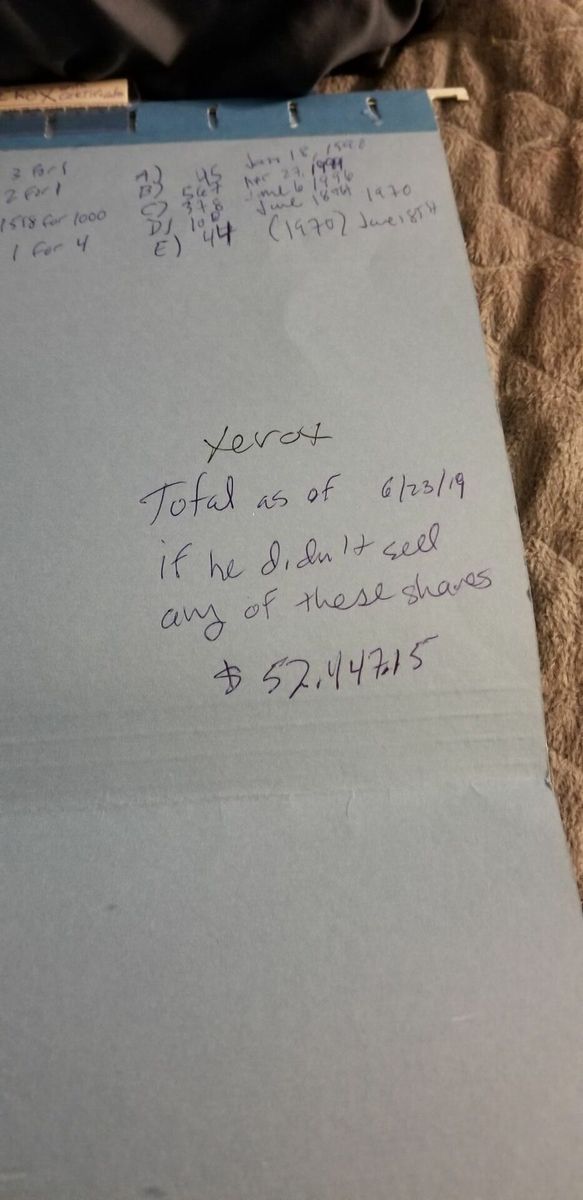 XEROX Certificate
3 for 1
2 for 1
1518 for 1000
1 for 4
A) 45 Jan 18, 1990
B) 567 Apr 27, 1999
C) 378 June 6 1996
D) 100 June 18th 1970
E) 44 (1970) June 18TH
Xerox
Total as of 6/23/19
if he didn't sell
any of these shares
$ 52,447.15